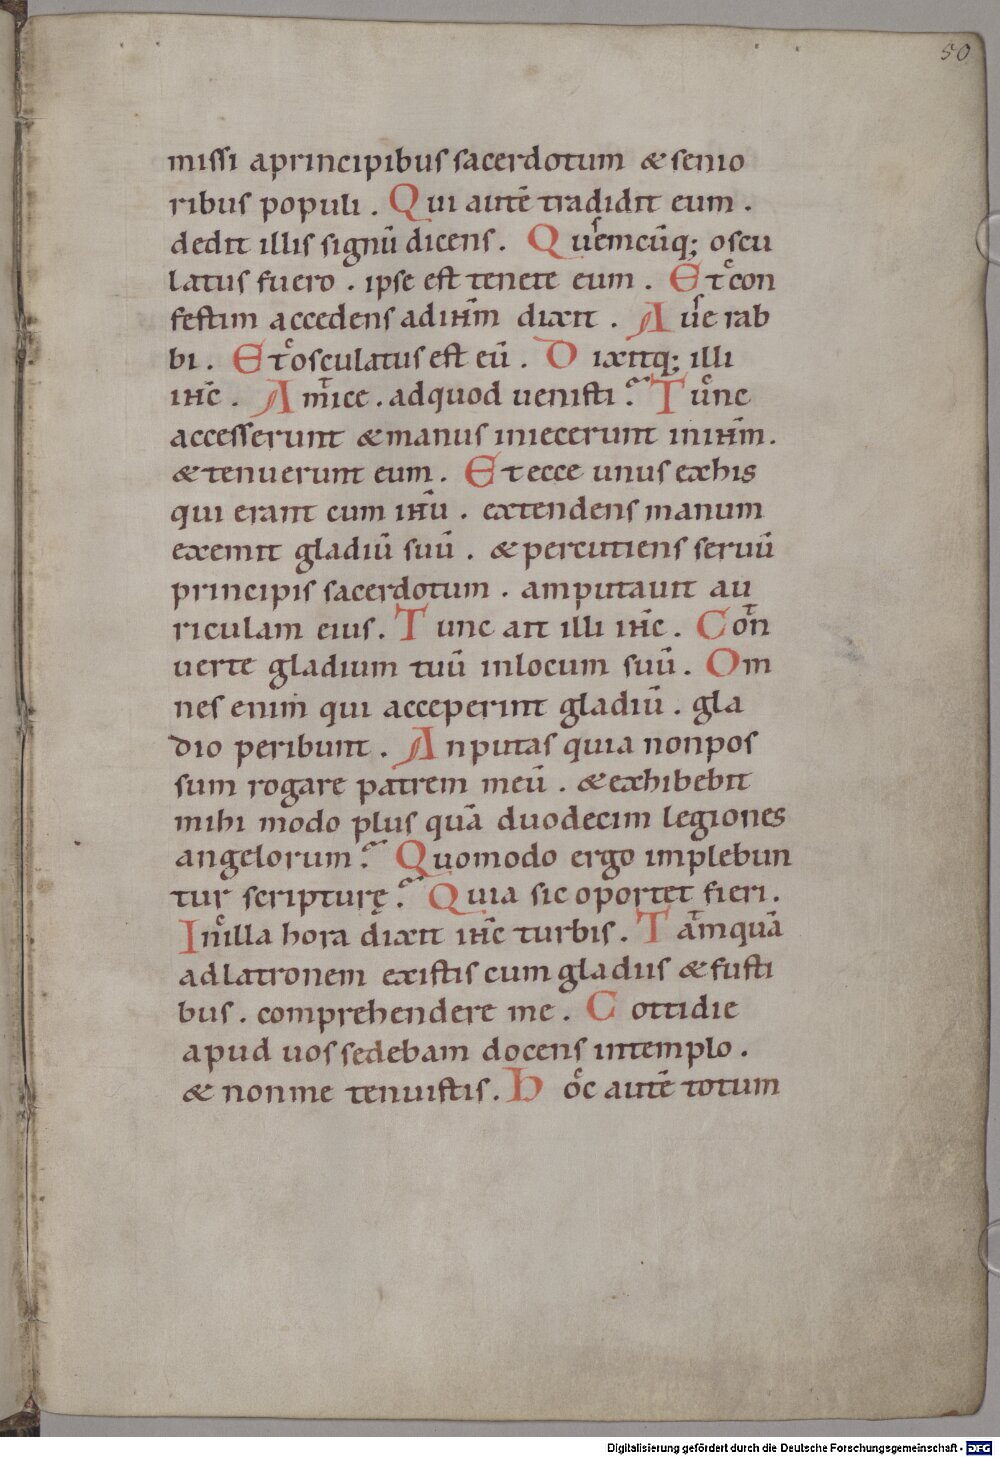 50
missi aprincipibus sacerdotum & senio
ribus populi . Qui autē tradidit eum .
dedit illis signū dicens . Quēmcūq; oscu
latus fuero . ipse est tenete eum . Et con
festim accedens ad ihm̄ dixit . Aue rab
bi . Et osculatus est eū . Dixitq; illi
ihc̄ . Amice . adquod uenisti ? Tunc
accesserunt & manus iniecerunt in ihm̄ .
& tenuerunt eum . Et ecce unus exhis
qui erant cum ihū . extendens manum
exemit gladiū suū . & percutiens seruū
principis sacerdotum . amputauit au
riculam eius . Tunc ait illi ihc̄ . Con
uerte gladium tuū inlocum suū . Om
nes enim qui acceperint gladiū . gla
dio peribunt . An putas quia nonpos
sum rogare patrem meū . & exhibebit
mihi modo plus quā duodecim legiones
angelorum ? Quomodo ergo implebun
tur scripturę ? Quia sic oportet fieri .
In illa hora dixit ihc̄ turbis . Tamquā
adlatronem existis cum gladiis & fusti
bus . comprehendere me . Cottidie
apud uos sedebam docens intemplo .
& nonme tenuistis . Hoc autē totum
Digitalisierung gefördert durch die Deutsche Forschungsgemeinschaft - DFG